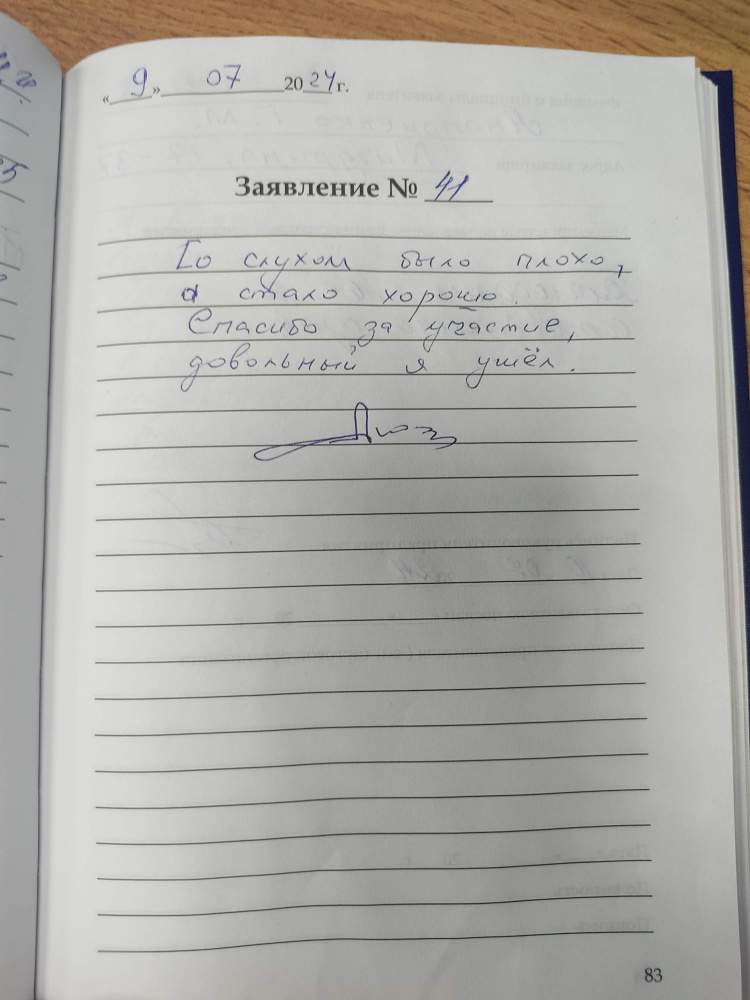 « 9 » 07 2024 г.
Заявление № 41
Со слухом было плохо,
а стало хорошо.
Спасибо за участие,
довольный я ушёл.
83